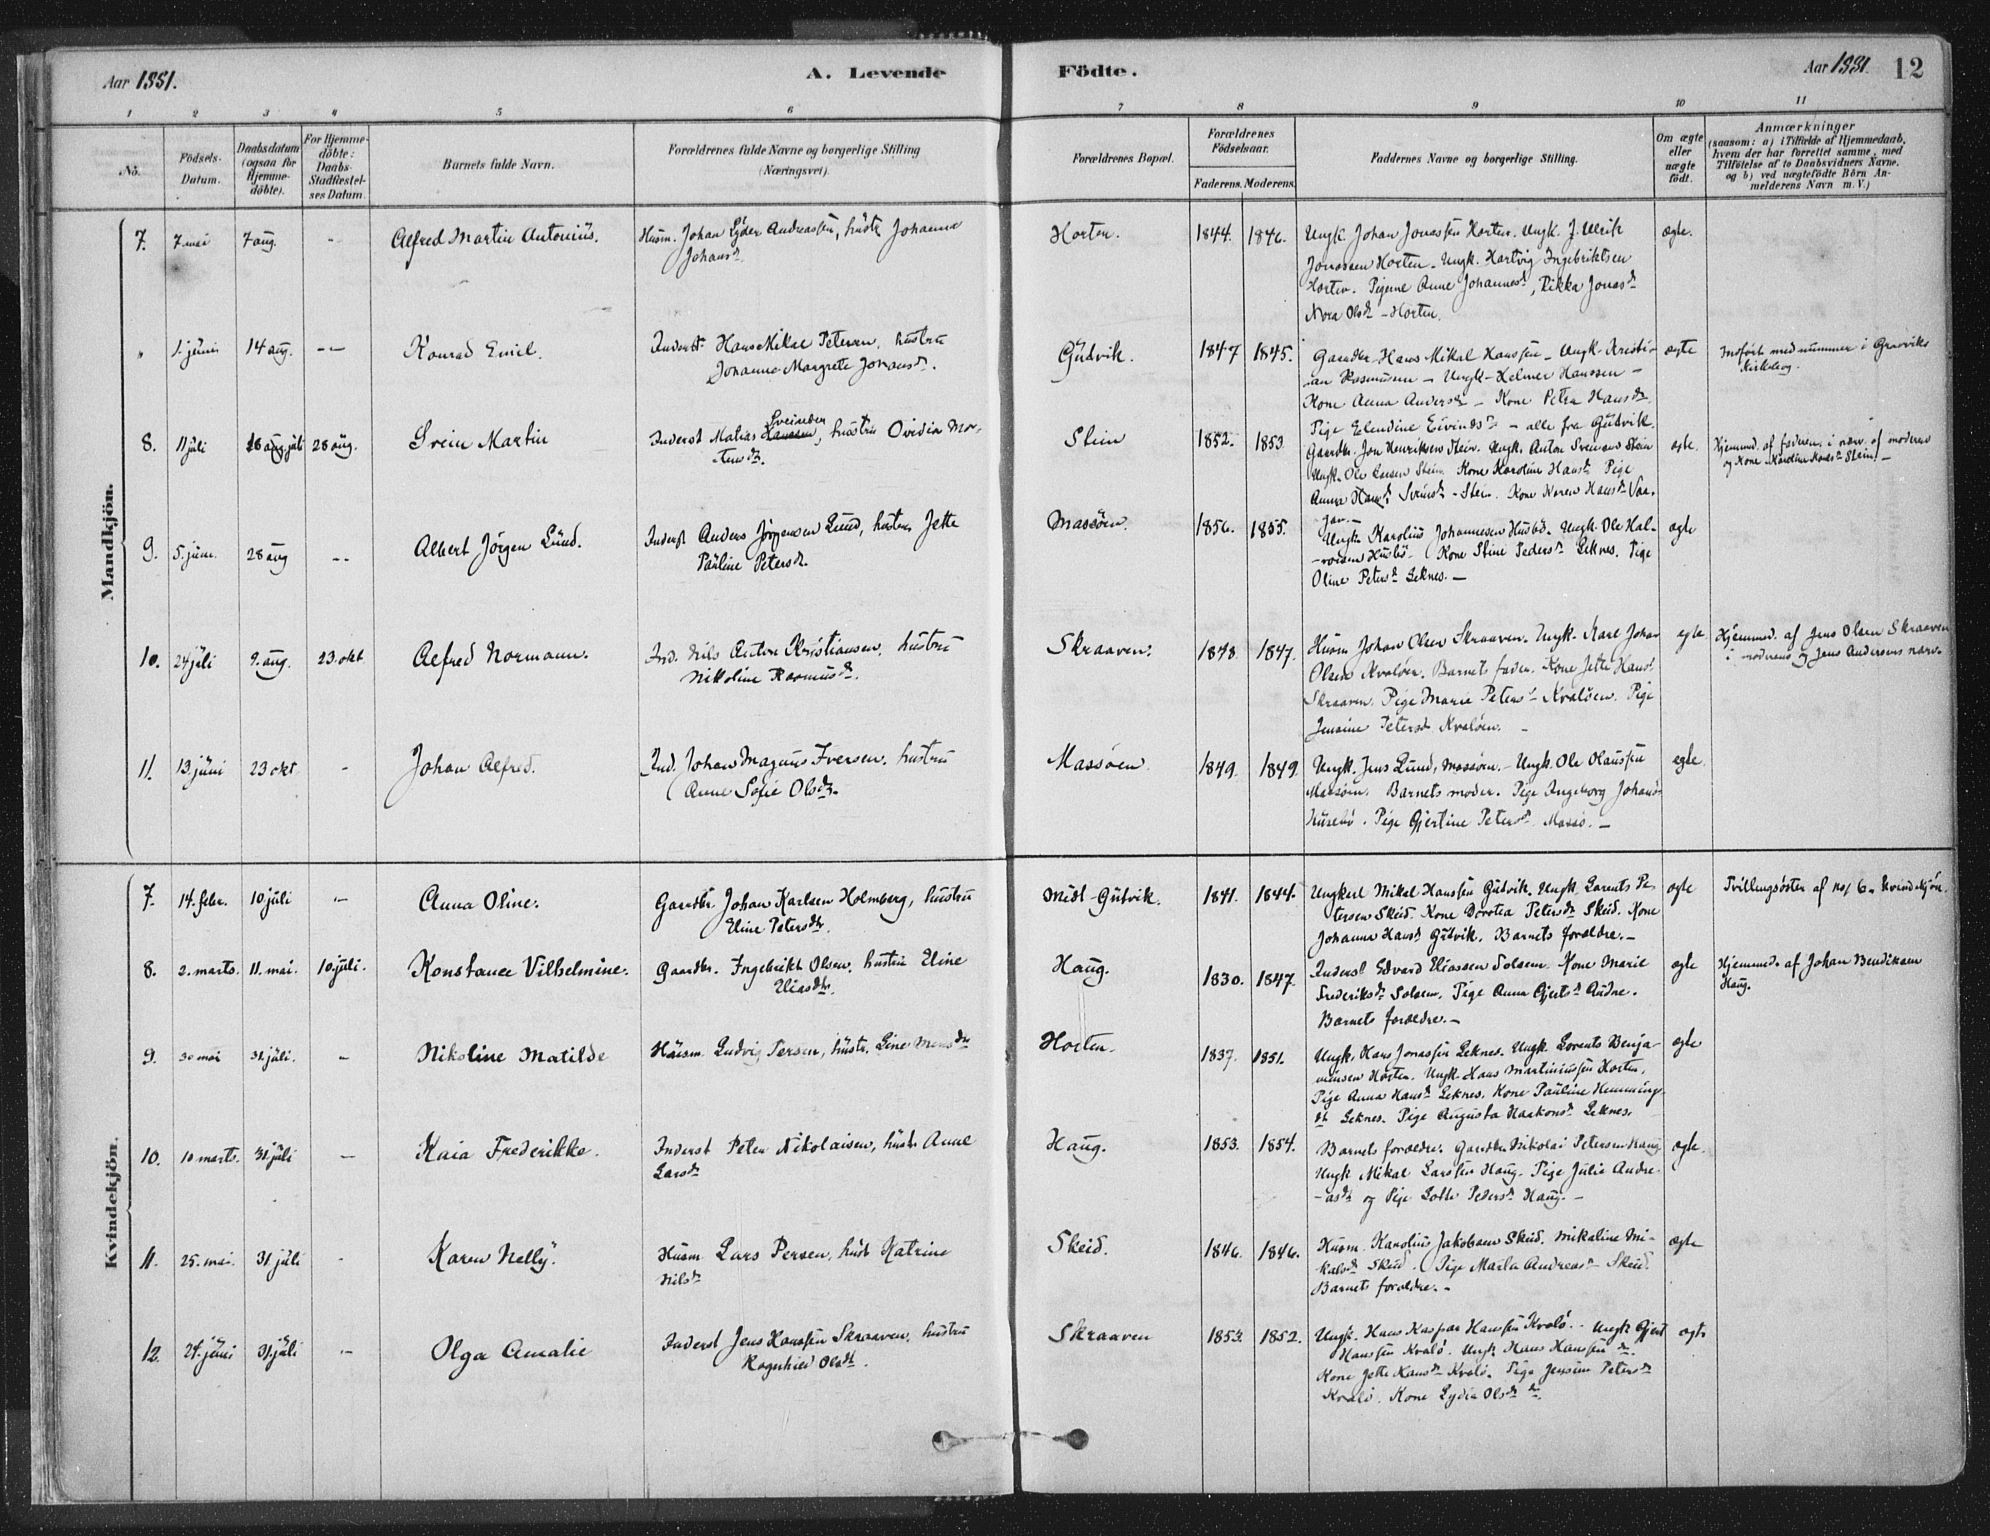 Aar 1881.
A. Levende
Födte.
Aar 1881. 12
1 2 3 4 5 6 7 8 9 10 11
No.
Födsels-
Datum.
Daabsdatum
(ogsaa for
Hjemme-
döbte).
For Hjemme-
döbte:
Daabs-
Stadfæstel-
ses Datum.
Barnets fulde Navn.
Forældrenes fulde Navne og borgerlige Stilling
(Næringsvei).
Forældrenes Bopæl.
Forældrenes
Födselsaar.
Faderens. Moderens.
Faddernes Navne og borgerlige Stilling.
Om ægte
eller
uægte
födt.
Anmærkninger
(saasom: a) i Tilfælde af Hjemmedaab,
hvem der har forrettet samme, med
Tilföielse af to Daabsvidners Navne,
og b) ved uægtefödte Börn An-
melderens Navn m. V.)
Mandkjön.
7. 7 mai 7 aug. - Alfred Martin Antonius.
Husm. Johan Lyder Andreassen, hustr. Johanna
Johansd.
Horten. 1844. 1846.
Ungk. Johan Jonassen Horten. Ungk. J. Ulrik
Jonassen Horten. Ungk. Hartvig Ingebriktsen
Horten. Pigerne Anne Johannesd, Rikka Jonasd
Nora Olsd - Horten.
ægte.
" 1. juni 14 aug. -- Konrad Emil.
Inderst. Hans Mikal Petersen, hustru
Johanna Margrete Johansd.
Gutvik. 1847 1845.
Gaardbr. Hans Mikal Hanssen - Ungk. Kristi-
an Rasmussen - Ungk. Helmer Hanssen -
Kone Anna Andersd - Kone Petra Hansd
Pige Elendine Eivindsd - alle fra Gutvik.
ægte
Indført med nummer i Gravviks
Kirkebog.
8. 11 juli 18 juli 28 aug. Svein Martin
Inderst Matias Sveinsen, hustru Ovidia Mor-
tensd.
Stein 1852. 1853
Gaardbr. Jon Henriksen Stein. Ungk. Anton Sveinsen Stein
Ungk. Ole Larsen Stein. Kone Karoline Hansd Pige
Anna Sveinsd - Stein. Kone Maren Hansd Vaa-
gan. -
egte.
Hjemmed. af faderen, i nærv. af moderen
og Kone Karoline Hansd Stein. -
9. 5. juni. 28 aug -- Albert Jörgen Lund.
Inderst Anders Jörgensen Lund, hustru Jette
Pauline Petersd.
Massöen. 1856. 1855.
Ungk. Karolius Johannesen Husbö. Ungk. Ole Hal-
vorsen Husbö. Kone Stine Pedersd Leknes. Pige
Oline Petersd Leknes. -
egte
10. 24 juli 9. aug. 23. okt Alfred Normann.
Ind. Nils Anton Kristiansen, hustru
Nikoline Rasmusd.
Skraaven. 1848. 1847.
Husm. Johan Olsen Skraaven. Ungk. Karl Johan
Olsen Kvalöen. Barnets fader. Kone Jette Hansd
Skraaven. Pige Marie Petersd Kvalöen. Pige
Jensine Petersd Kvalöen. -
egte
Hjemmed. af Jens Olsen Skraaven
i moderens og Jens Andersens nærv.
11. 13. juni 23 okt. - Johan Alfred.
Ind. Johan Magnus Iversen, hustru
Anne Sofie Olsdtr.
Massöen. 1849. 1849
Ungk. Jens Lund, Massöen. - Ungk. Ole Olaussen
Massöen. Barnets moder. Pige Ingeborg Johans-
Husebö. Pige Gjertine Petersd Massö. -
egte
Kvindekjön.
7. 14. febr. 10 juli - Anna Oline.
Gaardbr. Johan Karlsen Holmberg, hustru
Eline Petersdtr.
Midt-Gutvik. 1841. 1844.
Ungkarl Mikal Hanssen Gutvik. Ungk. Lorents Pe-
tersen Skeid. Kone Dorotea Petersd Skeid. Kone
Johanna Hansd Gutvik. Barnets forældre. -
egte
Tvillingsöster af no. 6 Kvindekjön.
8. 2. marts. 11. mai. 10. juli. Konstance Vilhelmine.
Gaardbr. Ingebrikt Olsen, hustru Eline
Eliasdtr.
Haug. 1830. 1847.
Inderst Edvard Eliassen Solsem. Kone Marie
Frederiksd Solsem. Pige Anna Gjertsd Audne.
Barnets forældre. -
egte
Hjemmed. af Johan Bendiksen
Haug.
9. 30 mai 31. juli. - Nikoline Matilde
Husm. Ludvig Persen, hustr. Line Monsdtr
Horten. 1837. 1851.
Ungk. Hans Jonassen Leknes. Ungk. Lorents Benja-
minsen Horten. Ungk. Hans Martiniussen Horten,
Pige Anna Hansd Leknes. Kone Pauline Hemmings-
dtr Leknes. Pige Augusta Haakonsd Leknes.
egte
10. 10 marts. 31. juli - Kaia Frederikke.
Inderst Peter Nikolaisen, hustr. Anne
Larsd
Haug. 1853. 1854.
Barnets forældre. Gaardbr. Nikolai Petersen Haug
Ungk Mikal Larssen Haug. Pige Julie Andre-
asd og Pige Lotte Pedersd Haug. -
egte.
11. 25. mai. 31. juli - Karen Nelly.
Husm Lars Persen, hust Katrine
Nilsd
Skeid. 1846. 1846.
Husm. Karolius Jakobsen Skeid. Mikaline Mi-
kalsd Skeid. Pige Marta Andreasd Skeid.
Barnets forældre. -
egte
12. 24. juni 31. juli - Olga Amalie
Inderst Jens Hanssen Skraaven, hustru
Ragnhild Olsdtr.
Skraaven 1853. 1852.
Ungk. Hans Kaspar Hanssen Kvalö. - Ungk Gjert
Hanssen Kvalö. Ungk Hans Hanssen do.
Kone Jette Hansd Kvalö. Pige Jensine Petersd
Kvalö. Kone Lydia Olsd do.
egte